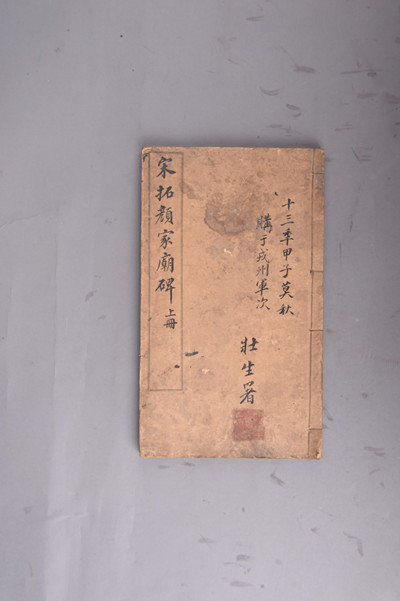 十三季甲子莫秋
購于戎州軍次
壯生署
宋拓顏家廟碑 上冊